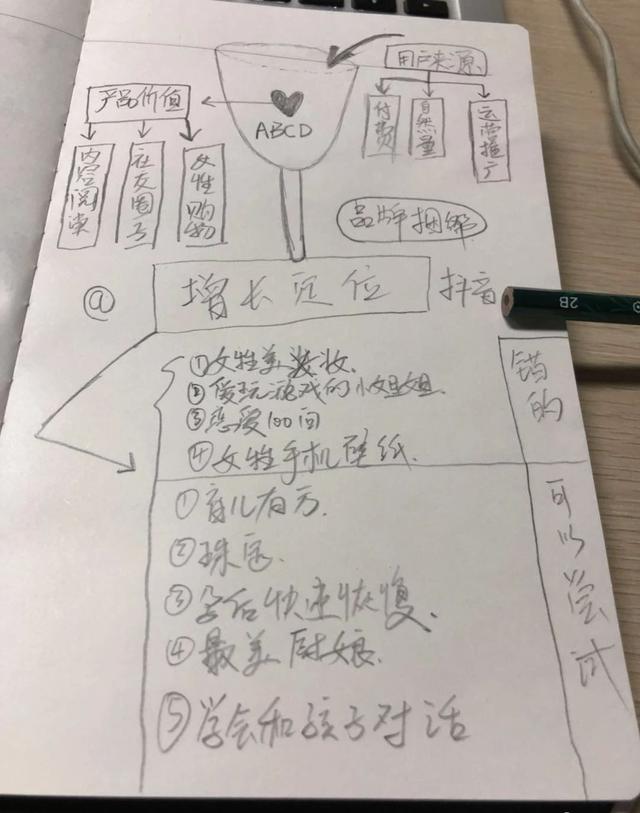 用户来源
产品价值
ABCD
付费
自然量
运营推广
内容阅读
社交圈子
女性购物
品牌捆绑
@
增长定位
抖音
2B
①女性美妆
②爱玩游戏的小姐姐
③恋爱100问
④女性手机壁纸.
错的
①育儿有方.
②珠宝.
③孕后快速恢复.
④最美厨娘.
⑤学会和孩子对话
可以尝试